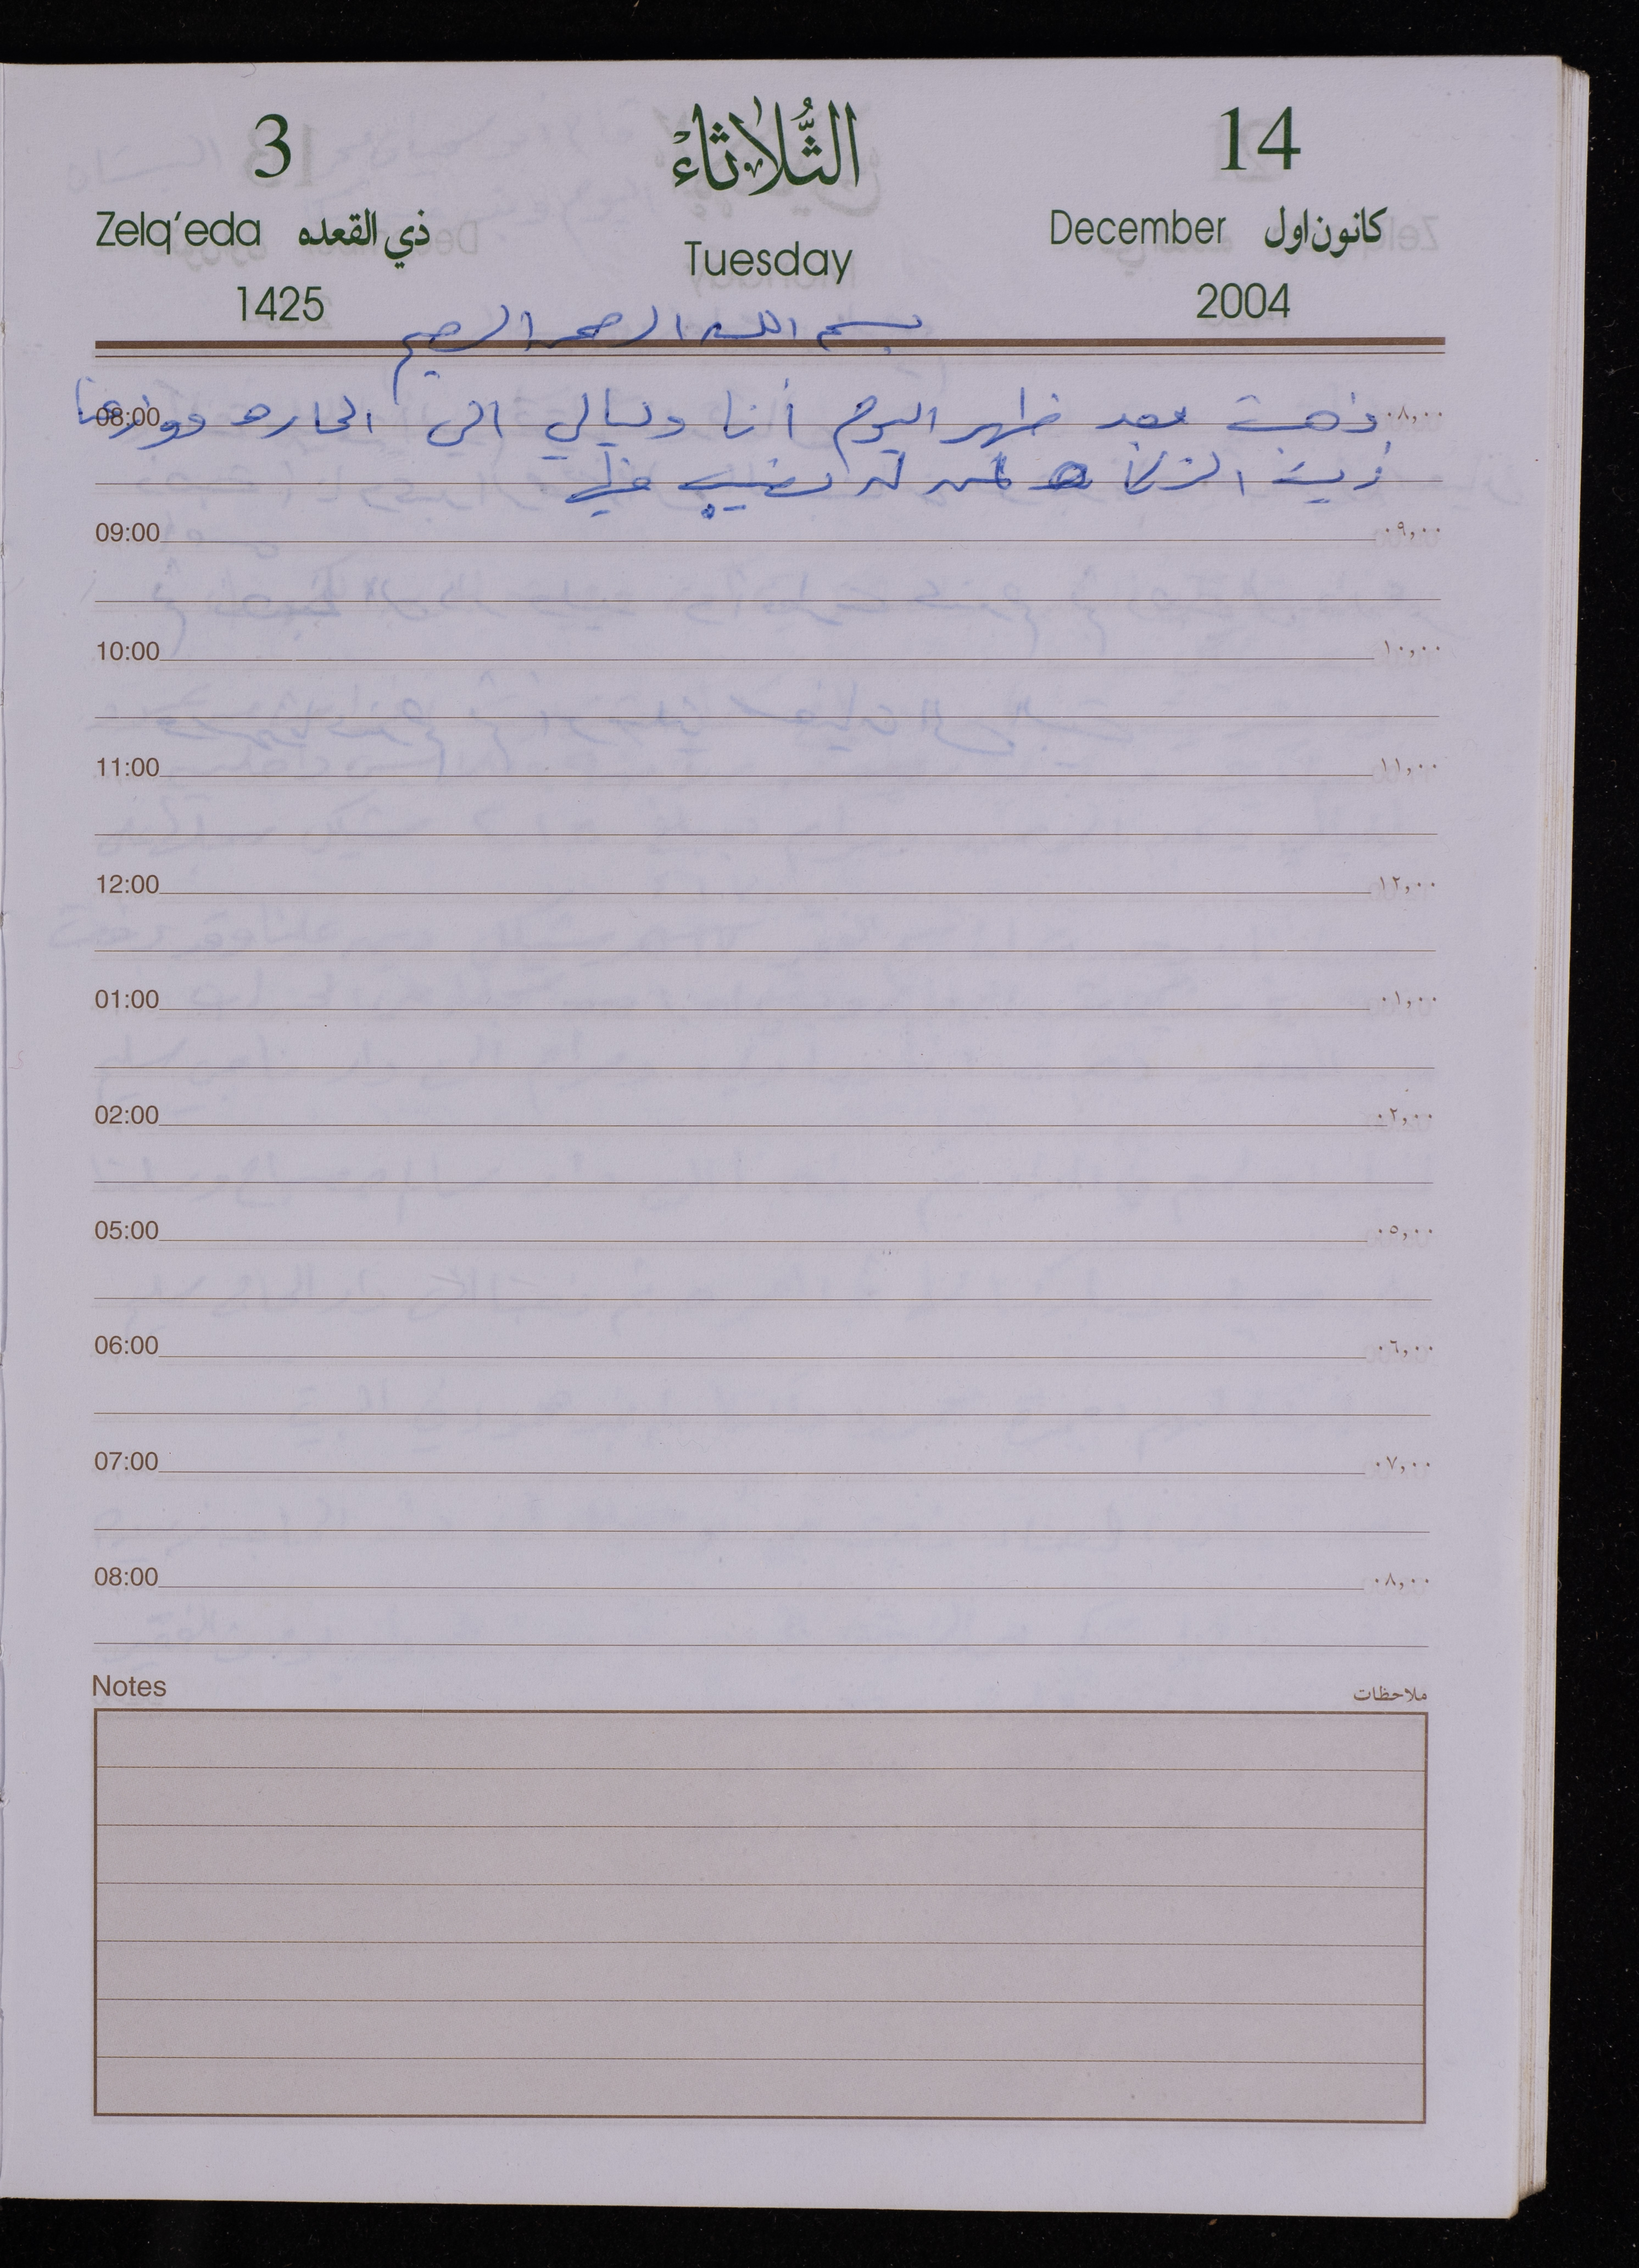 3 الثُّلاثاءُ 14
Zelq'eda ذي القعده Tuesday December كانون اول
1425 2004
بسم الله الرحمن الرحيم
08:00 ذهبت بعد ظهر اليوم أنا وليالي الى الحاره ووزعنا ٠٨,٠٠
زيت الزكاة لمن له نصيب فيه
09:00 ٠٩,٠٠
10:00 ١٠,٠٠
11:00 ١١,٠٠
12:00 ١٢,٠٠
01:00 ٠١,٠٠
02:00 ٠٢,٠٠
05:00 ٠٥,٠٠
06:00 ٠٦,٠٠
07:00 ٠٧,٠٠
08:00 ٠٨,٠٠
Notes ملاحظات